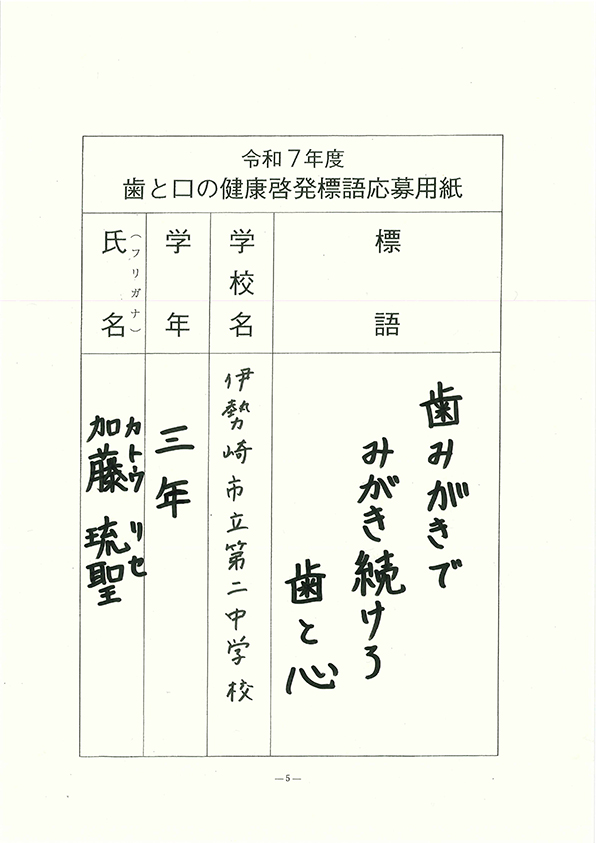 令和7年度
歯と口の健康啓発標語応募用紙
標語
歯みがきで
みがき続けろ
歯と心
学校名
伊勢崎市立第二中学校
学年
三年
氏名
(フリガナ)
カトウ リセ
加藤 琉聖
—5—